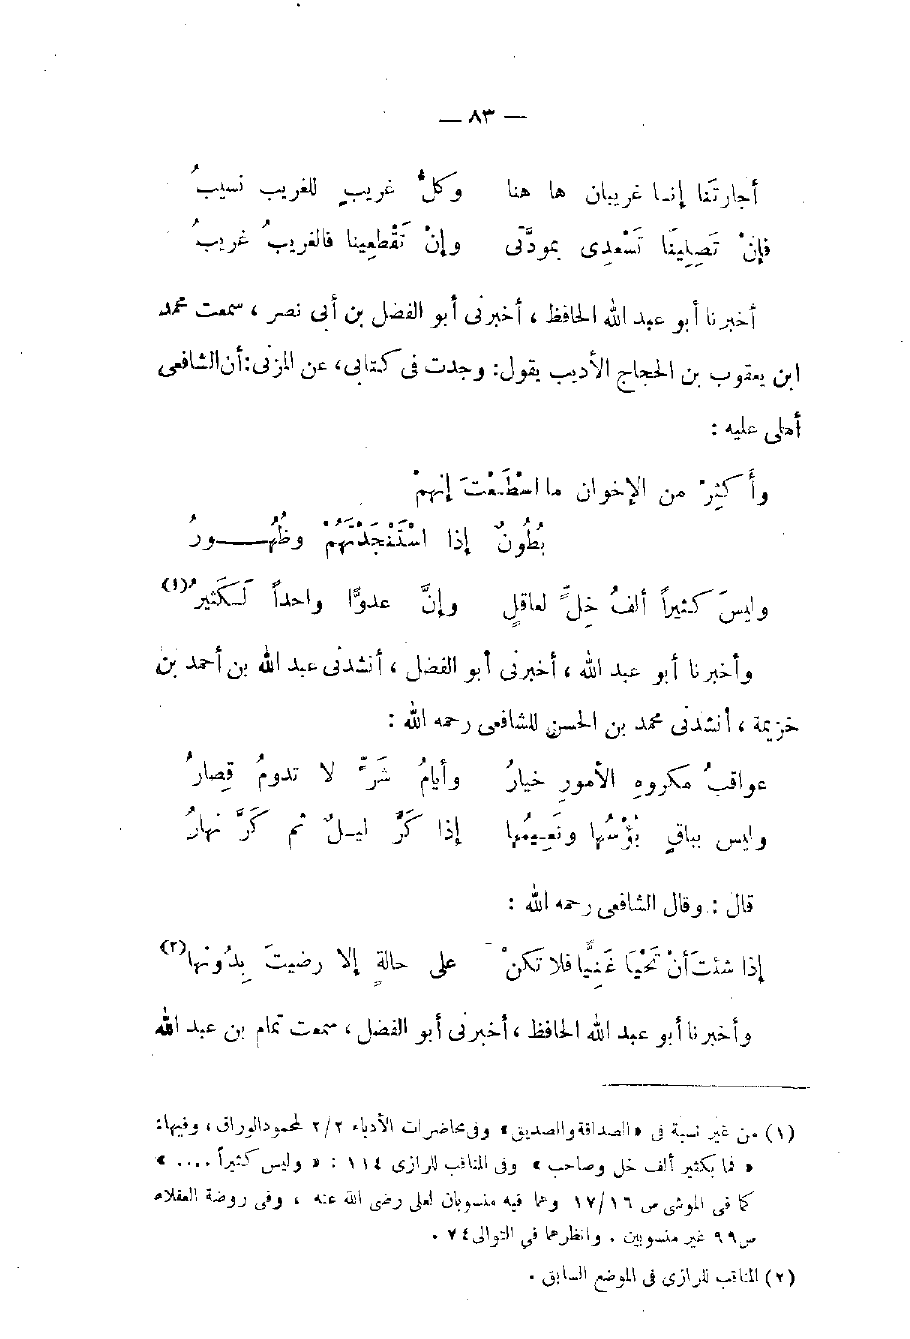 — ٨٣ —
أجارتَنا إنـا غريبان ها هنا وكلُّ غريبٍ للغريب نسيبُ
فإنْ تَصِلِينَا تَسْعدِى بمودَّتى وإنْ تَقْطعِينا فالغريبُ غريبُ
أخبرنا أبو عبد الله الحافظ ، أخبرنى أبو الفضل بن أبى نصر ، سمعت محمد
ابن يعقوب بن الحجاج الأديب يقول: وجدت فى كتابى، عن المزنى: أن الشافعى
أملى عليه :
وأَكثِرْ من الإخوان ما اسْطَعْتَ إنهمْ
بُطُونٌ إذا اسْتَنْجَدْتَهُمْ وظُهُـــورُ
وليسَ كثيراً ألفُ خِلٍّ لعاقلٍ وإنَّ عدوًّا واحداً لَكَثيرُ(١)
وأخبرنا أبو عبد الله ، أخبرنى أبو الفضل ، أنشدنى عبد الله بن أحمد بن
خزيمة ، أنشدنى محمد بن الحسن للشافعى رحمه الله :
عواقبُ مكروهِ الأمورِ خيارُ وأيامُ شَرٍّ لا تدومُ قِصارُ
وليس بباقٍ بُؤْسُها ونَعِيمُها إذا كَرَّ ليـلٌ ثم كَرَّ نهارُ
قال : وقال الشافعى رحمه الله :
إذا شئتَ أنْ تَحْيَا غَنِيًّا فلا تكنْ على حالةٍ إلا رضيتَ بِدُونها(٢)
وأخبرنا أبو عبد الله الحافظ ، أخبرنى أبو الفضل ، سمعت تمام بن عبد الله
(١) من غير نسبة فى «الصداقة والصديق» وفى محاضرات الأدباء ٢/٢ لمحمود الوراق ، وفيها:
« فما بكثير ألف خل وصاحب » وفى المناقب للرازى ١١٤ : « وليس كثيراً .... »
كما فى الموشى ص ١٧/١٦ وهما فيه منسوبان لعلى رضى الله عنه ، وفى روضة العقلاء
ص ٩٩ غير منسوبين . وانظرهما في التوالى ٧٤ .
(٢) المناقب للرازى فى الموضع السابق .